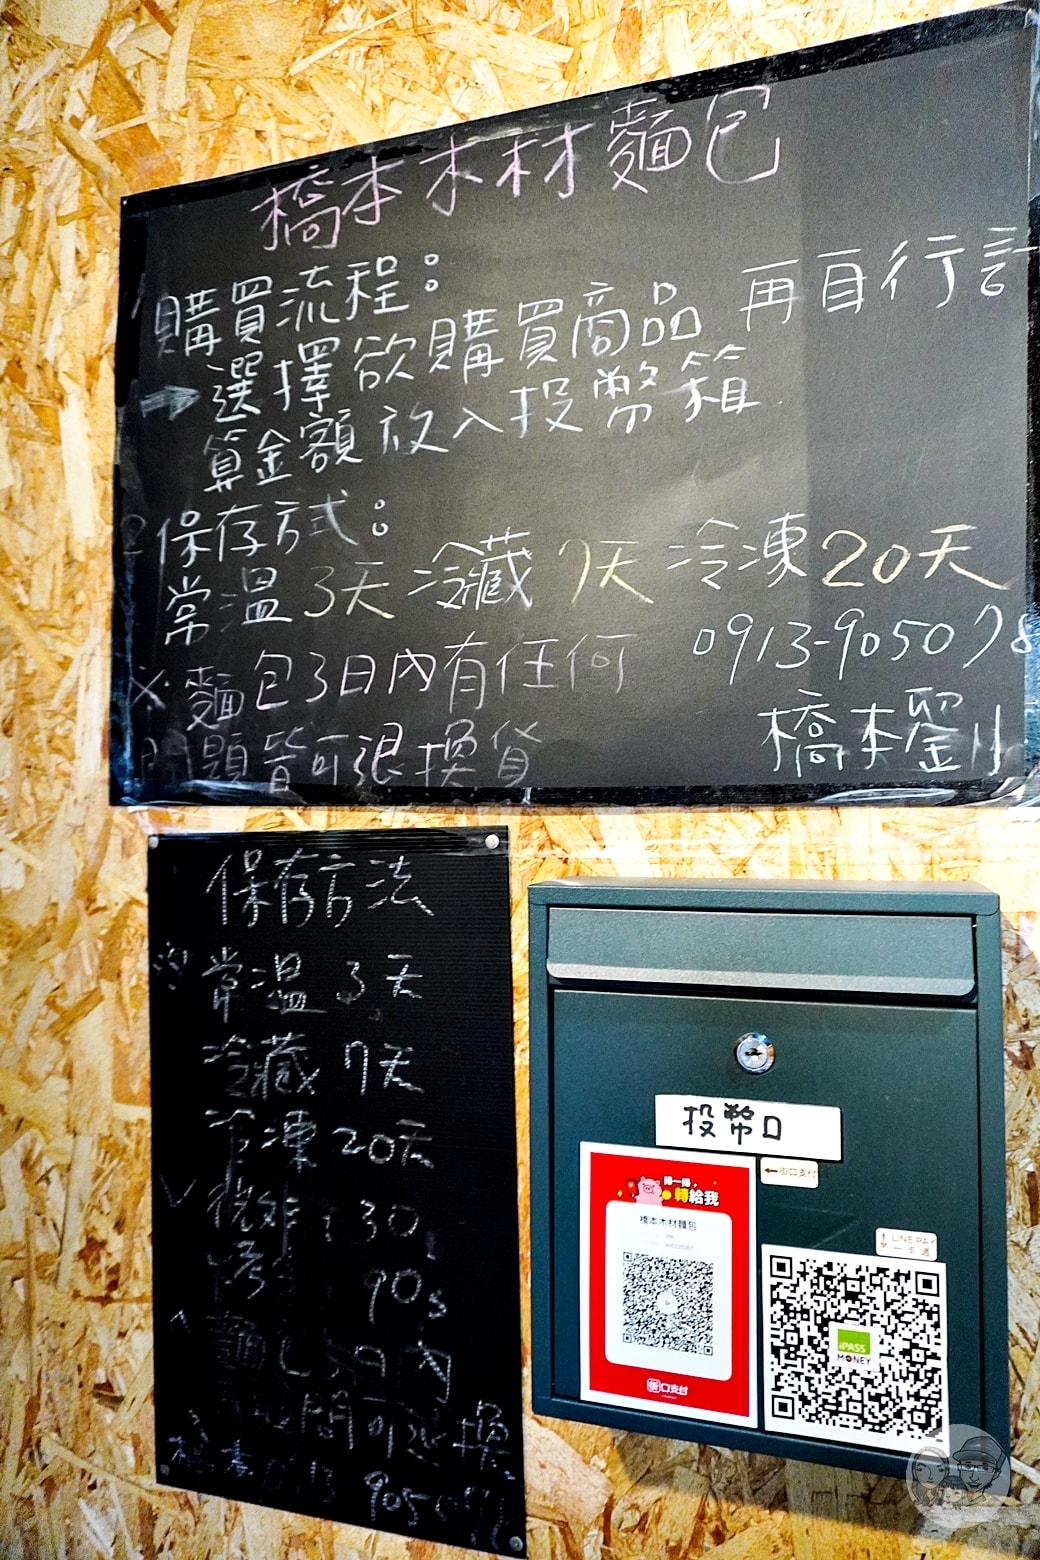 橋本木材麵包
購買流程：
→選擇欲購買商品 再自行計
算金額放入投幣箱
保存方式：
常溫3天 冷藏7天 冷凍20天
※麵包3日內有任何
問題皆可退換貨
0913-905078
橋本留
保存方法
常溫 3天
冷藏 7天
冷凍 20天
30
90s
日內
問可退換
投幣口
←街口支付
掃一掃，
轉給我
橋本木材麵包
街口支付
LINE PAY
一卡通
iPASS
MONEY